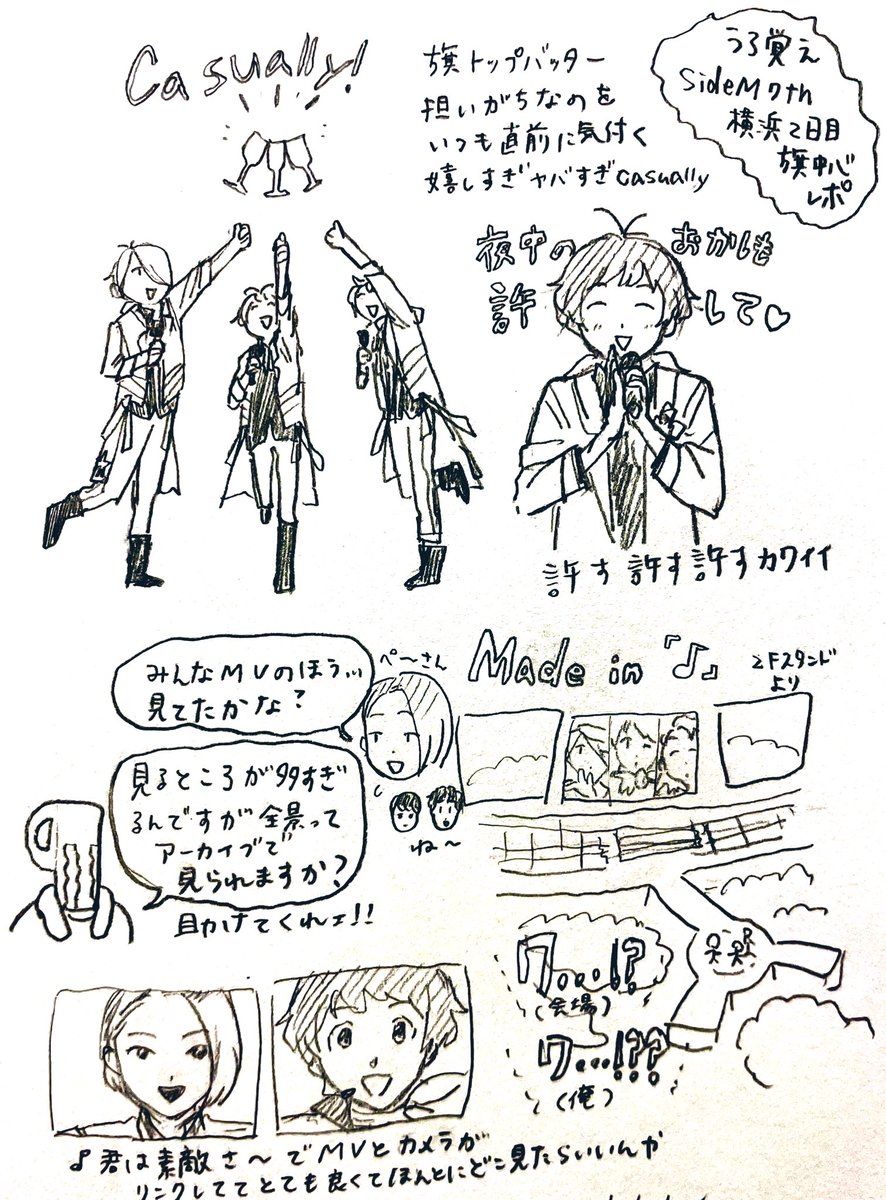 Casually!
旗トップバッター
担いがちなのを
いつも直前に気付く
嬉しすぎヤバすぎcasually
うろ覚え
SideM 7th
横浜2日目
旗中心
レポ
夜中の おかしも
許して♡
許す 許す 許す カワイイ
みんなMVのほう…
見てたかな?
ぺ〜さん
ね〜
見るところが多すぎ
るんですが全景って
アーカイブで
見られますか?
助けてくれェ!!
Made in『♪』
2Fスタンド
より
ワ…!?
(会場)
ワ…!??
(俺)
♪君は素敵さ〜でMVとカメラが
リンクしててとても良くてほんとにどこ見たらいいんか